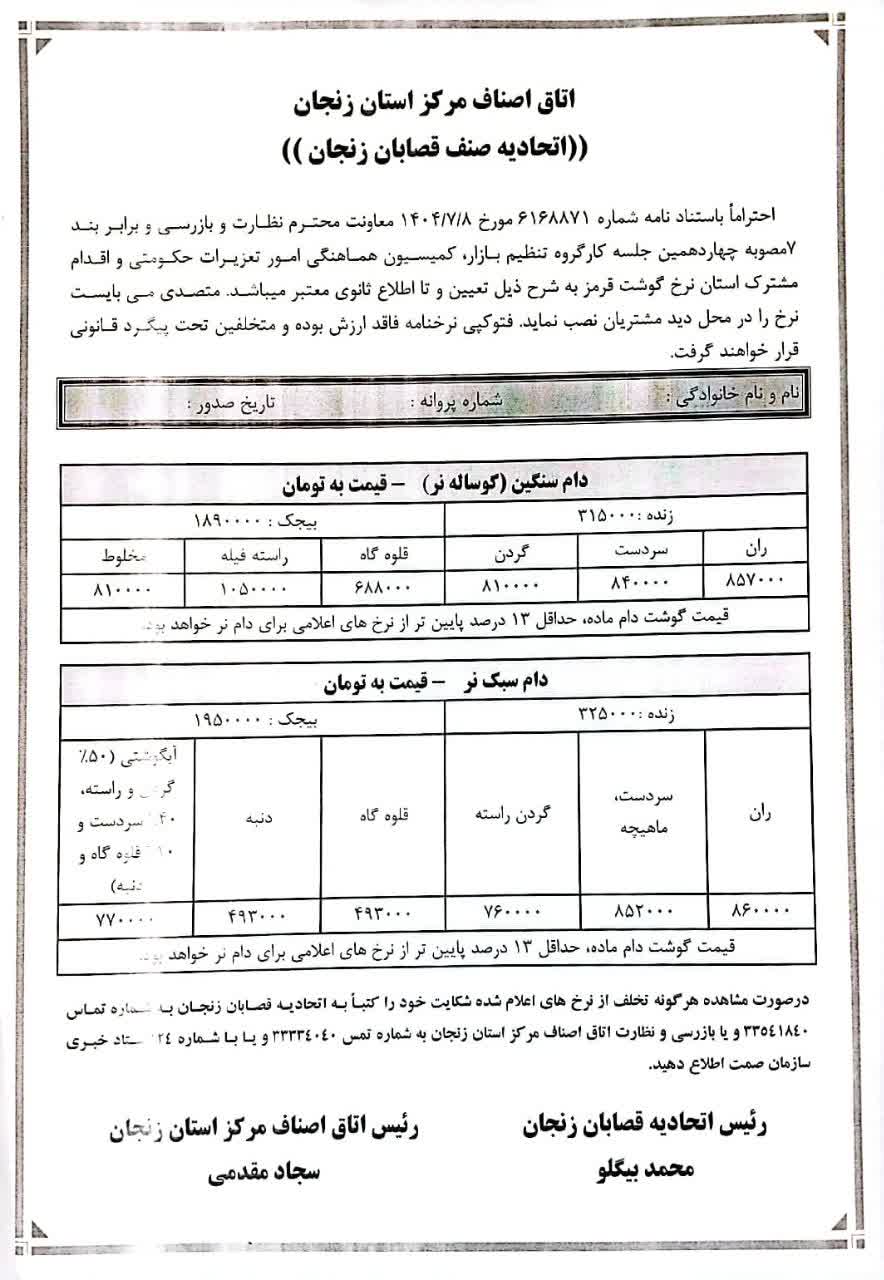 اتاق اصناف مرکز استان زنجان
((اتحادیه صنف قصابان زنجان))
احتراماً باستناد نامه شماره ۶۱۶۸۸۷۱ مورخ ۱۴۰۴/۷/۸ معاونت محترم نظارت و بازرسی و برابر بند
۷مصوبه چهاردهمین جلسه کارگروه تنظیم بازار، کمیسیون هماهنگی امور تعزیرات حکومتی و اقدام
مشترک استان نرخ گوشت قرمز به شرح ذیل تعیین و تا اطلاع ثانوی معتبر میباشد. متصدی می بایست
نرخ را در محل دید مشتریان نصب نماید. فتوکپی نرخنامه فاقد ارزش بوده و متخلفین تحت پیگرد قانونی
قرار خواهند گرفت.
نام و نام خانوادگی : شماره پروانه : تاریخ صدور :
دام سنگین (گوساله نر) – قیمت به تومان
زنده :۳۱۵۰۰۰ بیجک : ۱۸۹۰۰۰۰
ران سردست گردن قلوه گاه راسته فیله مخلوط
۸۵۷۰۰۰ ۸۴۰۰۰۰ ۸۱۰۰۰۰ ۶۸۸۰۰۰ ۱۰۵۰۰۰۰ ۸۱۰۰۰۰
قیمت گوشت دام ماده، حداقل ۱۳ درصد پایین تر از نرخ های اعلامی برای دام نر خواهد بود.
دام سبک نر – قیمت به تومان
زنده :۳۲۵۰۰۰ بیجک : ۱۹۵۰۰۰۰
ران
سردست،
ماهیچه
گردن راسته
قلوه گاه
دنبه
آبگوشتی (۵۰٪
گردن و راسته،
۴۰٪ سردست و
۱۰٪ قلوه گاه و
دنبه)
۸۶۰۰۰۰ ۸۵۲۰۰۰ ۷۶۰۰۰۰ ۴۹۳۰۰۰ ۴۹۳۰۰۰ ۷۷۰۰۰۰
قیمت گوشت دام ماده، حداقل ۱۳ درصد پایین تر از نرخ های اعلامی برای دام نر خواهد بود.
درصورت مشاهده هرگونه تخلف از نرخ های اعلام شده شکایت خود را کتباً به اتحادیه قصابان زنجان به شماره تماس
۳۳۵۴۱۸۴۰ و یا بازرسی و نظارت اتاق اصناف مرکز استان زنجان به شماره تمس ۳۳۳۳۴۰۴۰ و یا با شماره ۱۲۴ ستاد خبری
سازمان صمت اطلاع دهید.
رئیس اتحادیه قصابان زنجان
محمد بیگلو
رئیس اتاق اصناف مرکز استان زنجان
سجاد مقدمی